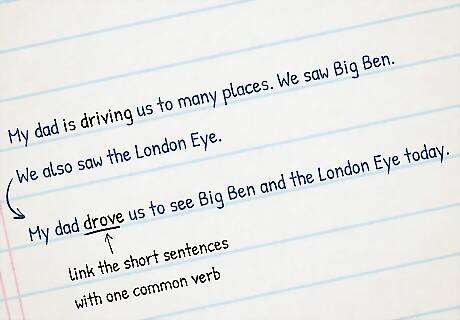 My dad is driving us to many places. We saw Big Ben.
We also saw the London Eye.
My dad drove us to see Big Ben and the London Eye today.
link the short sentences
with one common verb